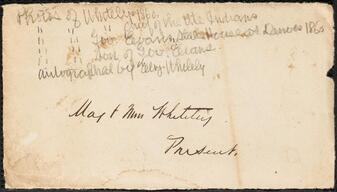 Photos of Whiteley 1865
" " Chief of the Ute Indians
" " Gov. Evans State House at Denver 1865
" " Son of Gov. Evans
autographed by Whiteley
Maj & Mrs Whiteley
Present.